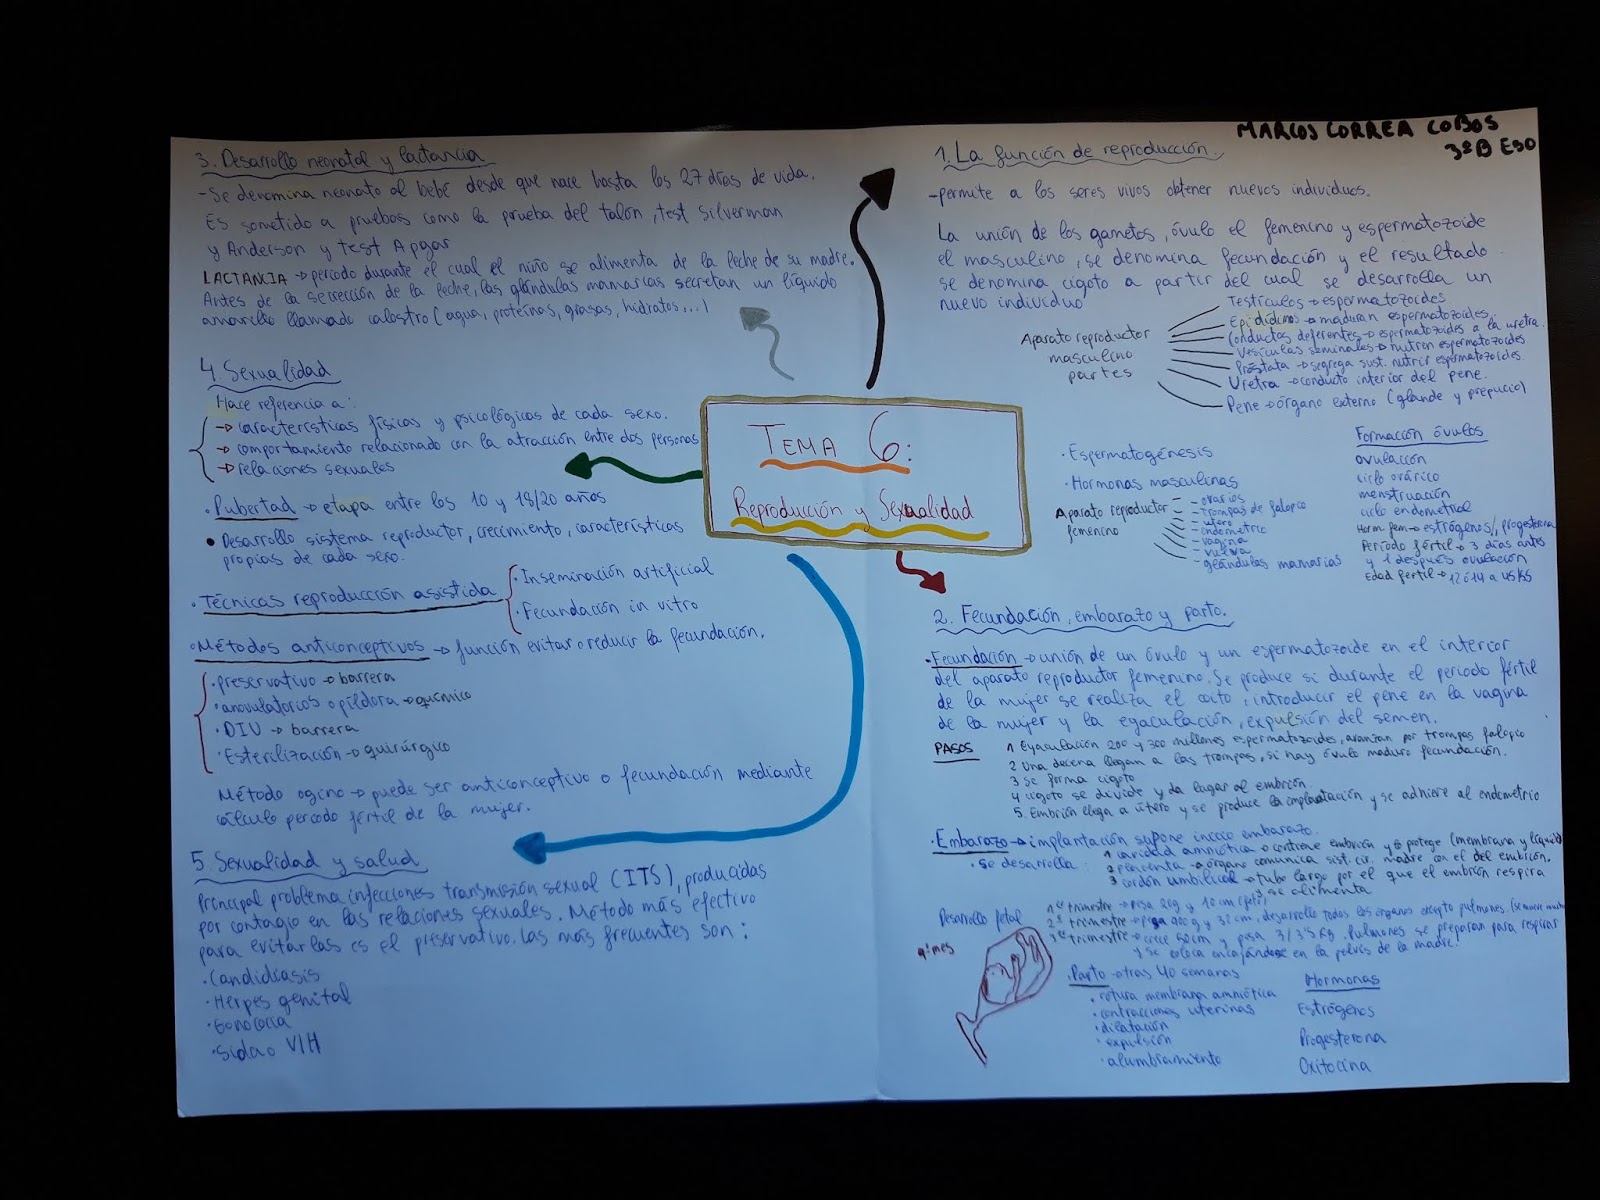 MARCOS CORREA COBOS
3ºB ESO
TEMA 6:
Reproducción y Sexualidad
1. La función de reproducción.
-permite a los seres vivos obtener nuevos individuos.
La unión de los gametos, óvulo el femenino y espermatozoide
el masculino, se denomina fecundación y el resultado
se denomina cigoto a partir del cual se desarrolla un
nuevo individuo
Aparato reproductor
masculino
partes
Testículos → espermatozoides
Epidídimos → maduran espermatozoides.
Conductos deferentes → espermatozoides a la uretra.
Vesículas seminales → nutren espermatozoides
Próstata → segrega sust. nutrir espermatozoides.
Uretra → conducto interior del pene.
Pene → órgano externo (glande y prepucio)
· Espermatogénesis
· Hormonas masculinas
Aparato reproductor
femenino
- ovarios
- trompas de falopio
- útero
- endometrio
- vagina
- vulva
- glándulas mamarias
Formación óvulos
ovulación
ciclo ovárico
menstruación
ciclo endometrial
Horm fem → estrógenos // progesterona
Período fértil → 3 días antes
y 1 después ovulación
Edad fértil → 12 ó 14 a 45/55
2. Fecundación, embarazo y parto.
· Fecundación → unión de un óvulo y un espermatozoide en el interior
del aparato reproductor femenino. Se produce si durante el período fértil
de la mujer se realiza el coito, introducir el pene en la vagina
de la mujer y la eyaculación, expulsión del semen.
PASOS
1 Eyaculación 200 y 300 millones espermatozoides, avanzan por trompas falopio
2 Una decena llegan a las trompas, si hay óvulo maduro fecundación.
3 Se forma cigoto
4 cigoto se divide y da lugar al embrión.
5. Embrión llega a útero y se produce la implantación y se adhiere al endometrio
· Embarazo → implantación supone inicio embarazo.
· se desarrolla:
1 cavidad amniótica → contiene embrión y protege (membrana y líquido)
2 placenta → órgano comunica sist. cir. madre con el del embrión.
3 cordón umbilical → tubo largo por el que el embrión respira
y se alimenta
Desarrollo fetal
1er trimestre → pesa 20g y 10 cm (feto)
2º trimestre → pesa 900 g y 32 cm, desarrollo todos los órganos excepto pulmones. (se mueve mucho)
3er trimestre → crece 50cm y pesa 3/3'5 Kg. Pulmones se preparan para respirar
y se coloca encajándose en la pelvis de la madre.
9º mes
· Parto → otras 40 semanas
· rotura membrana amniótica
· contracciones uterinas
· dilatación
· expulsión
· alumbramiento
Hormonas
Estrógenos
Progesterona
Oxitocina
3. Desarrollo neonatal y lactancia
- Se denomina neonato al bebé desde que nace hasta los 27 días de vida.
Es sometido a pruebas como la prueba del talón, test Silverman
y Anderson y test Apgar
LACTANCIA → período durante el cual el niño se alimenta de la leche de su madre.
Antes de la secrección de la leche, las glándulas mamarias secretan un líquido
amarillo llamado calostro (agua, proteínas, grasas, hidratos,...)
4. Sexualidad
Hace referencia a:
→ características físicas y psicológicas de cada sexo.
→ comportamiento relacionado con la atracción entre dos personas
→ relaciones sexuales
· Pubertad → etapa entre los 10 y 18/20 años
• Desarrollo sistema reproductor, crecimiento, características
propias de cada sexo.
· Técnicas reproducción asistida
· Inseminación artificial
· Fecundación in vitro
· Métodos anticonceptivos → función evitar o reducir la fecundación.
· preservativo → barrera
· anovulatorios o píldora → químico
· DIU → barrera
· Esterilización → quirúrgico
Método ogino → puede ser anticonceptivo o fecundación mediante
cálculo período fértil de la mujer.
5. Sexualidad y salud
Principal problema infecciones transmisión sexual (ITS), producidas
por contagio en las relaciones sexuales. Método más efectivo
para evitarlas es el preservativo. Las más frecuentes son:
· Candidiasis
· Herpes genital
· Gonococia
· Sida o VIH